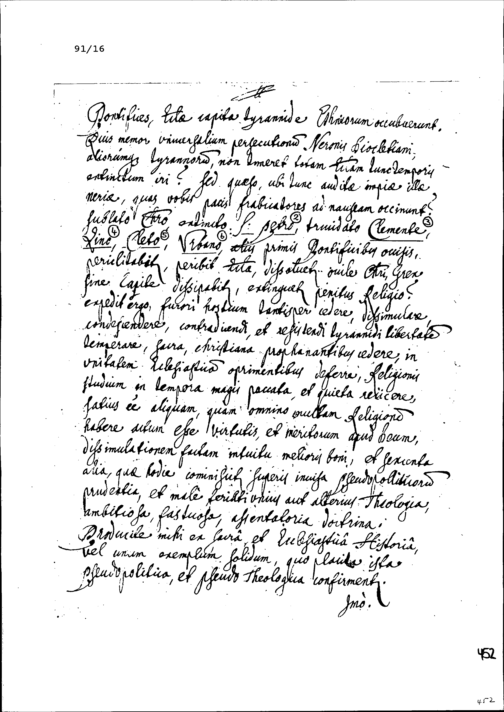 91/16
Pontifices, tota capita tyrannide Ethnicorum occubuerunt.
Quis memor universalium persecutionum Neronis Diocletiani,
aliorumq; tyrannorum, non timeret totam tunc temporis
extinctum iri? Sed quęso, ubi tunc auditę impię illę
nerię, quas vobis pacis frabicatores ad nauseam occinunt?
sublato Chro extincto S. petro ② truidato Clemente, ③
Lino, ④ Cleto ⑤ Vrbano ⑥ primis Pontificibus ouisis,
periclitabit, peribit tota, dissoluet ouile Chri, Grex
sine Capite dissipabit, extinguet penitus Religio?
expedit ergo, furori hostium tantisper cedere, dissimulare,
condescendere, contradicendi et resistendi tyrannidi libertate
temperare, sacra, christiana prophanantibus cedere, in
unitatem Ecclesiastica opprimentibus deferre, Religionis
studium in tempora magis paccata, et quieta reiicere,
satius ee aliquam, quam omnino nullam Religione
habere actum esse virtutis, et meritorum apud Deum,
dissimulationem factam intuitu melioris boni, et sexcenta
alia, quę hodie superis inuisa pseudopolliticorum
prudentia, et male feriati unius aut alterius Theologia,
ambitiosa, fastuosa, assentatoria doctrina.
Producite mihi ex sacra et Ecclesiastica Historia,
vel unum exemplum solidum, quo placita ista
pseudopolitica, et pseudo theologica confirment.
Imo.
452
452